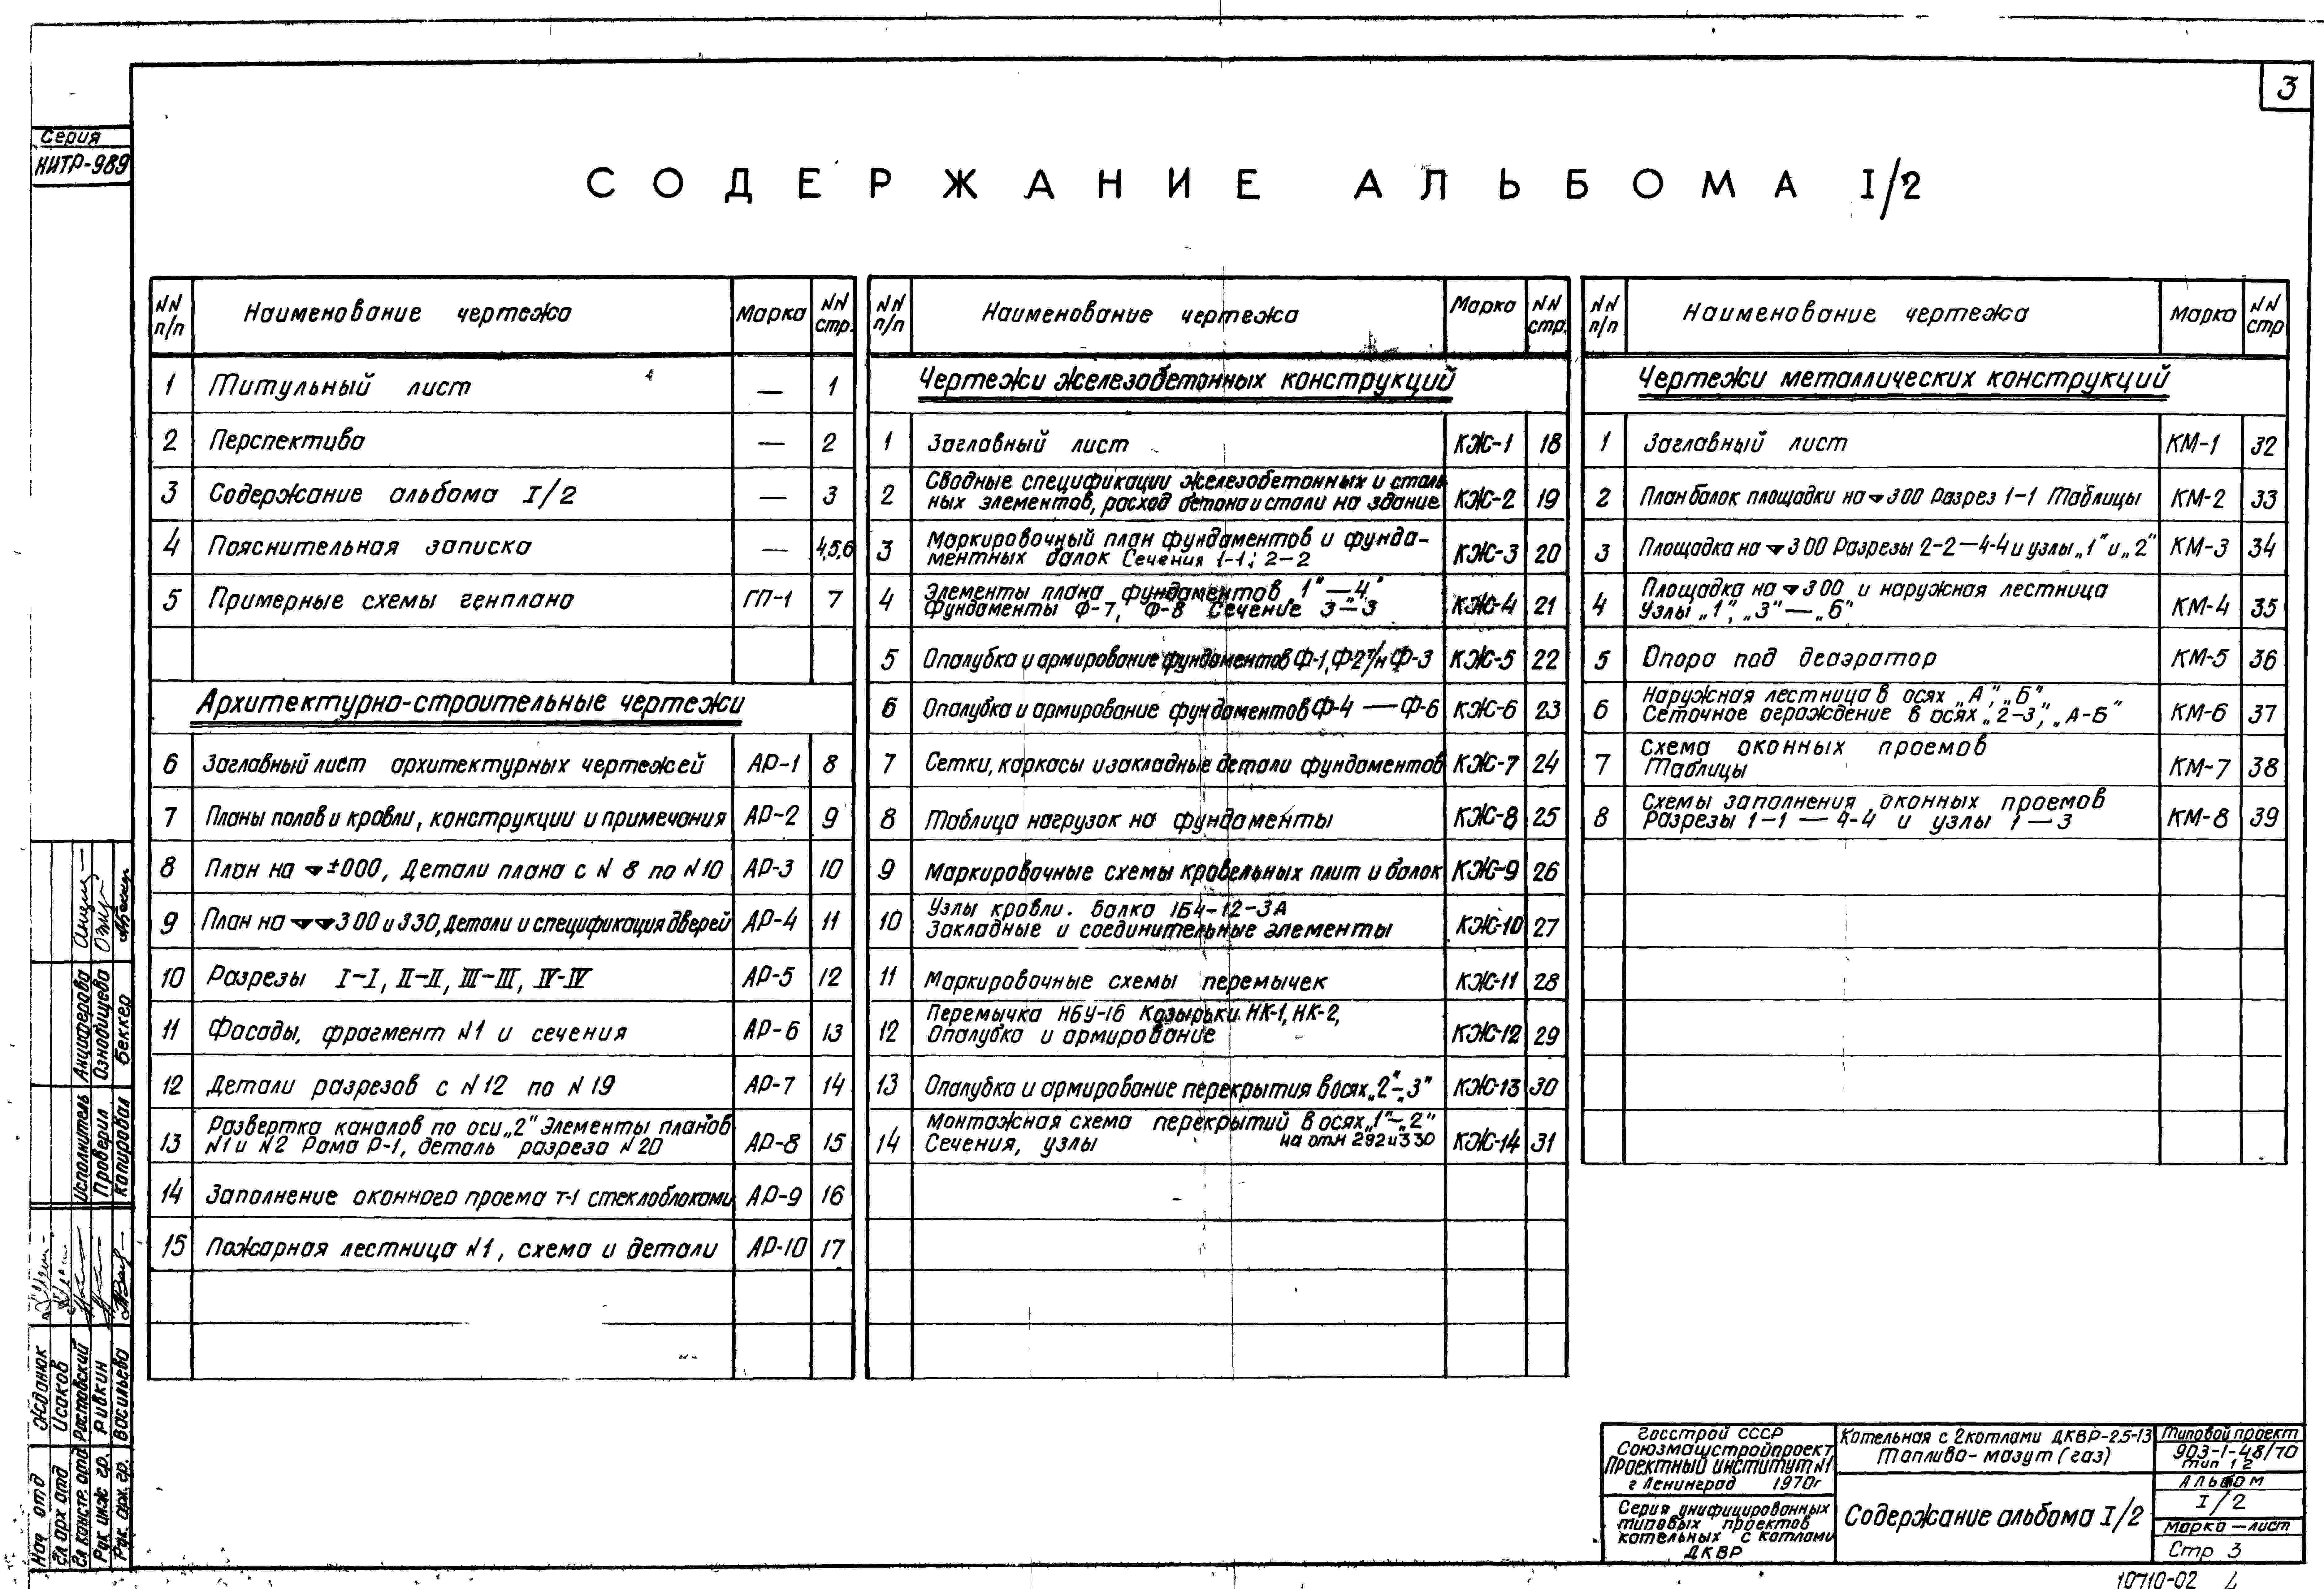 3
Серия
НИТР-989
СОДЕРЖАНИЕ АЛЬБОМА I/2
NN п/п Наименование чертежа Марка NN стр.
1 Титульный лист — 1
2 Перспектива — 2
3 Содержание альбома I/2 — 3
4 Пояснительная записка — 4,5,6
5 Примерные схемы генплана ГП-1 7
Архитектурно-строительные чертежи
6 Заглавный лист архитектурных чертежей АР-1 8
7 Планы полов и кровли, конструкции и примечания АР-2 9
8 План на ±000, Детали плана с N 8 по N10 АР-3 10
9 План на 300 и 330, Детали и спецификация дверей АР-4 11
10 Разрезы I-I, II-II, III-III, IV-IV АР-5 12
11 Фасады, фрагмент N1 и сечения АР-6 13
12 Детали разрезов с N12 по N19 АР-7 14
13 Развертка каналов по оси „2" Элементы планов
N1 и N2 Рама Р-1, деталь разреза N20 АР-8 15
14 Заполнение оконного проема Т-1 стеклоблоками АР-9 16
15 Пожарная лестница N1, схема и детали АР-10 17
NN п/п Наименование чертежа Марка NN стр.
Чертежи железобетонных конструкций
1 Заглавный лист КЖ-1 18
2 Сводные спецификации железобетонных и сталь
ных элементов, расход бетона и стали на здание КЖ-2 19
3 Маркировочный план фундаментов и фунда-
ментных балок Сечения 1-1; 2-2 КЖ-3 20
4 Элементы плана фундаментов „1"—„4"
Фундаменты Ф-7, Ф-8 Сечение 3-3 КЖ-4 21
5 Опалубка и армирование фундаментов Ф-1, Ф-2 Ф-3 КЖ-5 22
6 Опалубка и армирование фундаментов Ф-4 — Ф-6 КЖ-6 23
7 Сетки, каркасы и закладные детали фундаментов КЖ-7 24
8 Таблица нагрузок на фундаменты КЖ-8 25
9 Маркировочные схемы кровельных плит и балок КЖ-9 26
10 Узлы кровли. Балка 1Б4-12-3А
Закладные и соединительные элементы КЖ-10 27
11 Маркировочные схемы перемычек КЖ-11 28
12 Перемычка НБУ-16 Козырьки НК-1, НК-2,
Опалубка и армирование КЖ-12 29
13 Опалубка и армирование перекрытия в осях „2"-„3" КЖ-13 30
14 Монтажная схема перекрытий в осях „1"-„2"
Сечения, узлы на отм 292 и 330 КЖ-14 31
NN п/п Наименование чертежа Марка NN стр
Чертежи металлических конструкций
1 Заглавный лист КМ-1 32
2 План балок площадки на 300 Разрез 1-1 Таблицы КМ-2 33
3 Площадка на 300 Разрезы 2-2—4-4 и узлы „1" и „2" КМ-3 34
4 Площадка на 300 и наружная лестница
Узлы „1", „3"—„6" КМ-4 35
5 Опора под деаэратор КМ-5 36
6 Наружная лестница в осях „А", „Б",
Сеточное ограждение в осях „2-3", „А-Б" КМ-6 37
7 Схема оконных проемов
Таблицы КМ-7 38
8 Схемы заполнения оконных проемов
Разрезы 1-1 — 4-4 и узлы 1—3 КМ-8 39
Исполнитель Анциферова
Проверил Ознобищева
Копировал Беккер
Нач отд Жданюк
Гл арх отд Исаков
Гл констр. отд Ростовский
Рук инж гр. Ривкин
Рук. арх. гр. Васильева
Госстрой СССР
Союзмашстройпроект
Проектный институт N1
г Ленинград 1970г
Серия унифицированных
типовых проектов
котельных с котлами
ДКВР
Котельная с 2 котлами ДКВР-2.5-13
Топливо - мазут (газ)
Содержание альбома I/2
Типовой проект
903-1-48/70
тип 1 2
Альбом
I/2
Марка — лист
Стр 3
10710-02 4